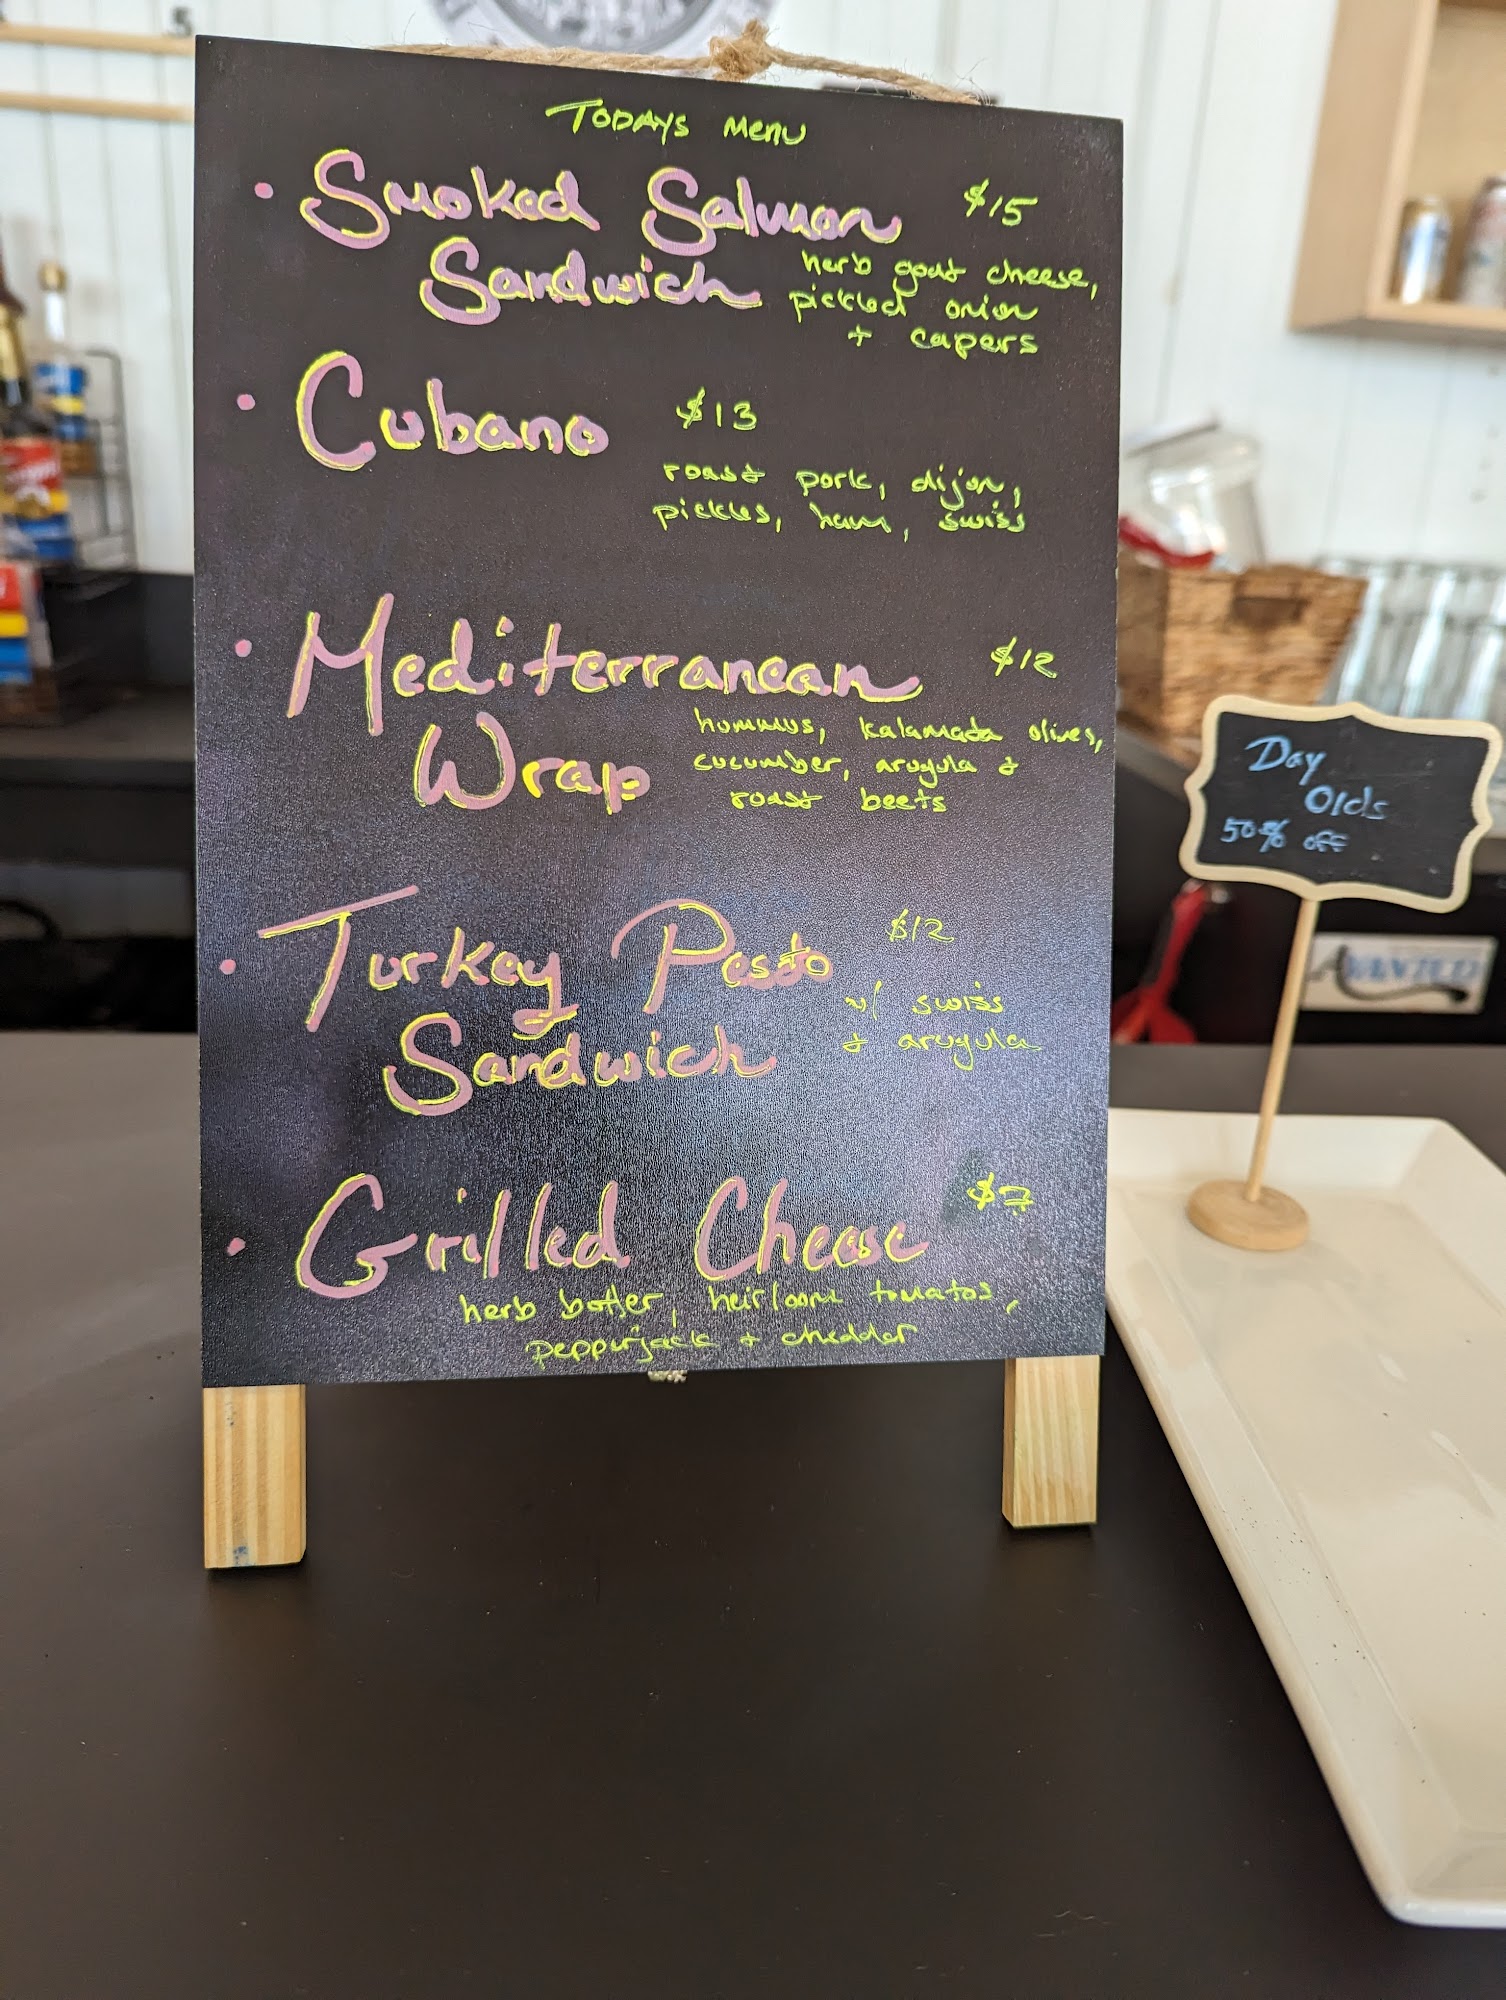 TODAYS Menu
• Smoked Salmon $15
Sandwich herb goat cheese,
pickled onion
+ capers
• Cubano $13
roast pork, dijon,
pickles, ham, swiss
• Mediterranean $12
Wrap hummus, kalamada olives,
cucumber, arugula +
roast beets
• Turkey Pesto $12
Sandwich w/ swiss
+ arugula
• Grilled Cheese $7
herb butter, heirloom tomatos,
pepperjack + cheddar
Day
Olds
50% off